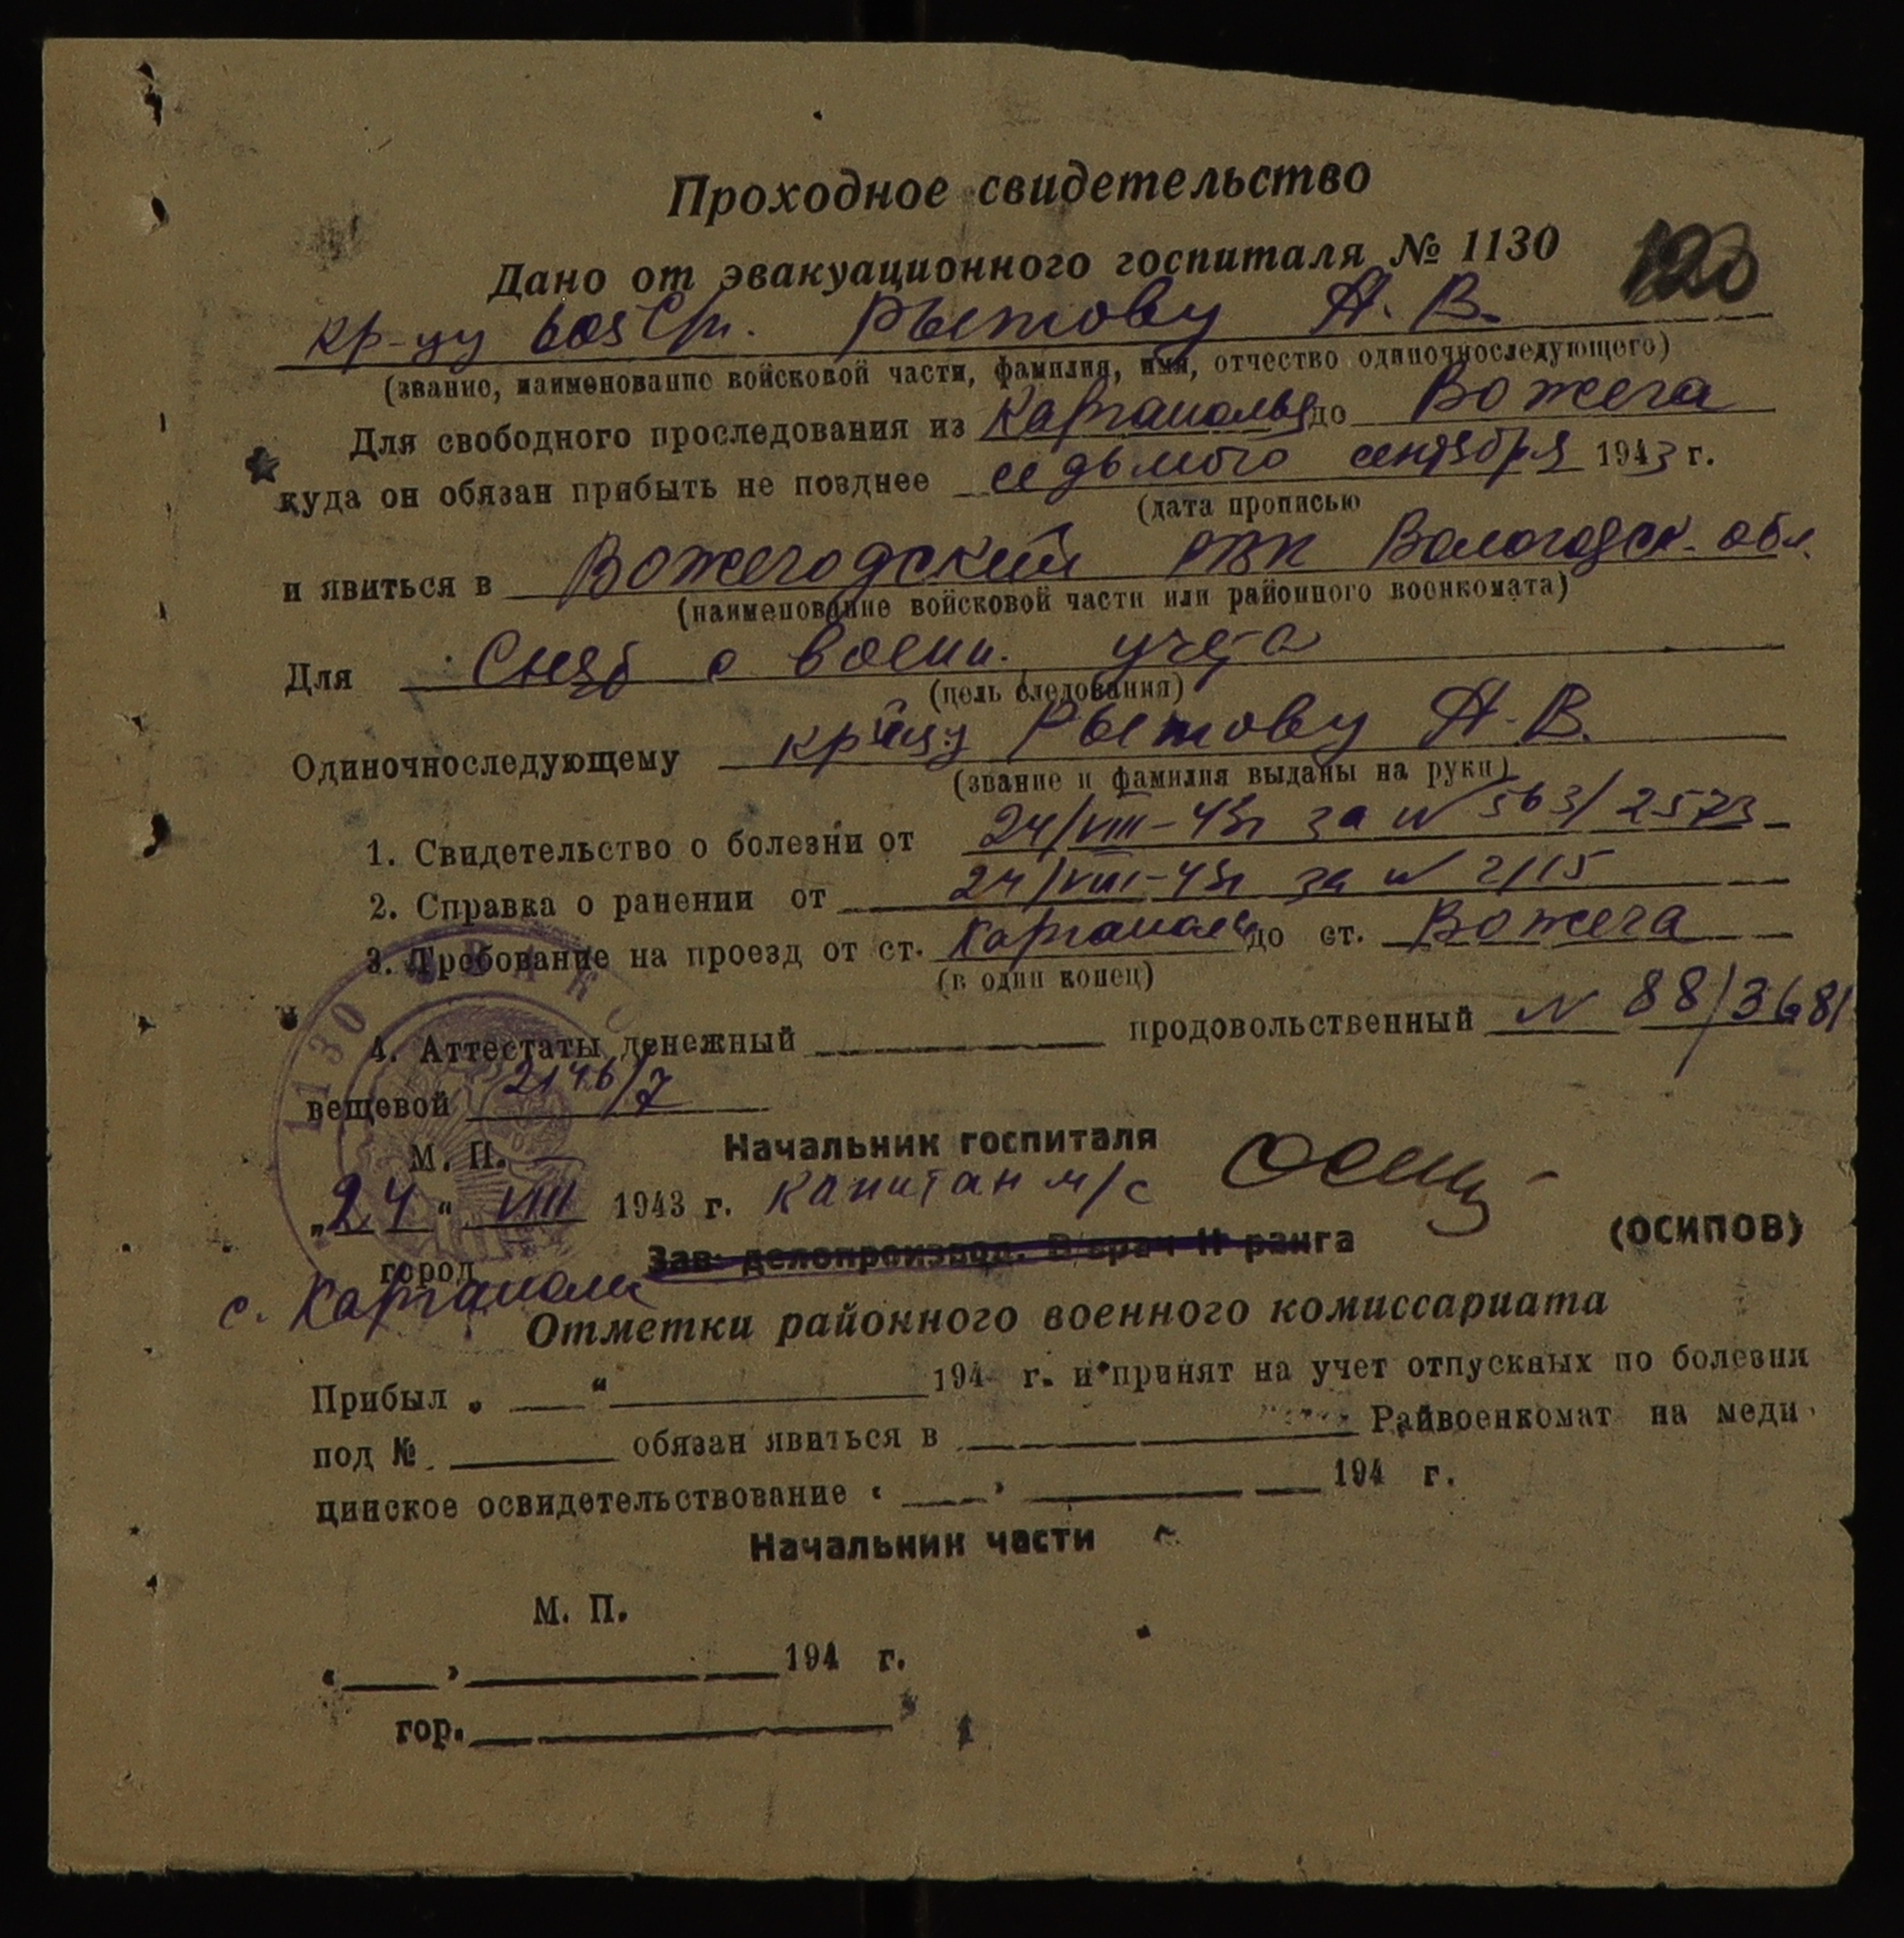 Проходное свидетельство
Дано от эвакуационного госпиталя № 1130
кр-цу 605 Ср. Рытову А. В.
(звание, наименование войсковой части, фамилия, имя, отчество одиночноследующего)
Для свободного проследования из Каргаполья до Вожега
куда он обязан прибыть не позднее седьмого сентября 1943 г.
(дата прописью
и явиться в Вожегодский РВК Вологодск. обл.
(наименование войсковой части или районного военкомата)
Для Снят с воен. учета
(цель следования)
Одиночноследующему кр-цу Рытову А. В.
(звание и фамилия выданы на руки)
1. Свидетельство о болезни от 24/VIII-43г за № 563/2573
2. Справка о ранении от 24/VIII-43г за № 2115
3. Требование на проезд от ст. Каргаполье до ст. Вожега
(в один конец)
4. Аттестаты денежный продовольственный № 88/3681
вещевой 2146/7
1130
М. П. Начальник госпиталя
„24“ VIII 1943 г. капитан м/с
Зав. делопроизвод. В врач II ранга (ОСИПОВ)
город
с. Каргаполье
Отметки районного военного комиссариата
Прибыл „ “ 194 г. и принят на учет отпускных по болезни
под № обязан явиться в Райвоенкомат на меди-
цинское освидетельствование „ “ 194 г.
Начальник части
М. П.
„ “ 194 г.
гор.